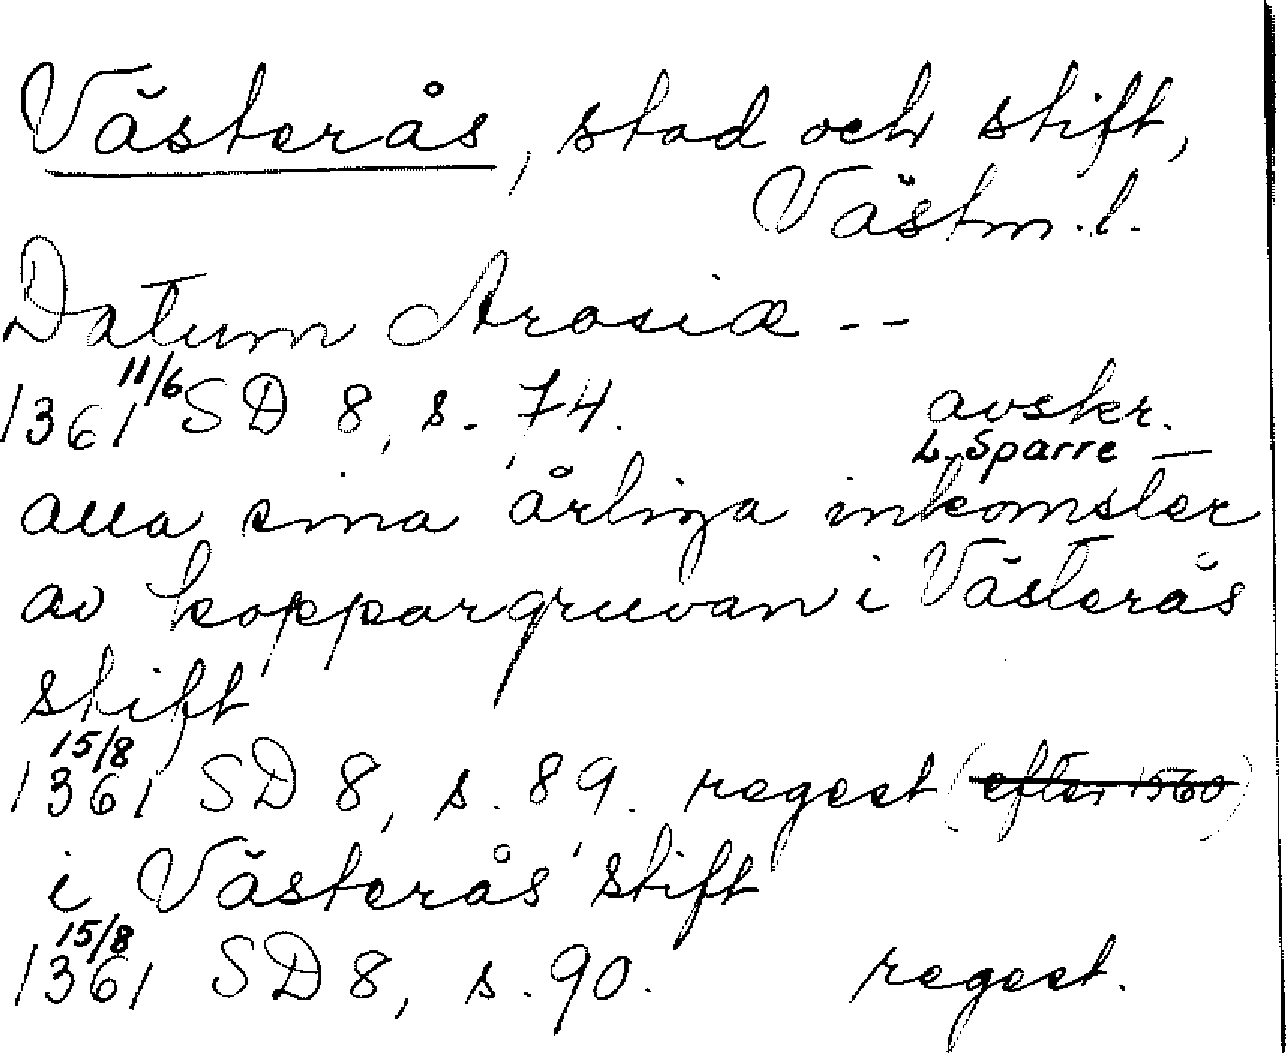 Västerås, stad och stift,
Västm. l.
Datum Arosiæ --
1361 11/6 SD 8, s. 74. avskr.
L. Sparre —
alla sina årliga inkomster
av koppargruvan i Västerås
stift
1361 15/8 SD 8, s. 89. regest (efter 1560)
i Västerås stift
1361 15/8 SD 8, s. 90. regest.